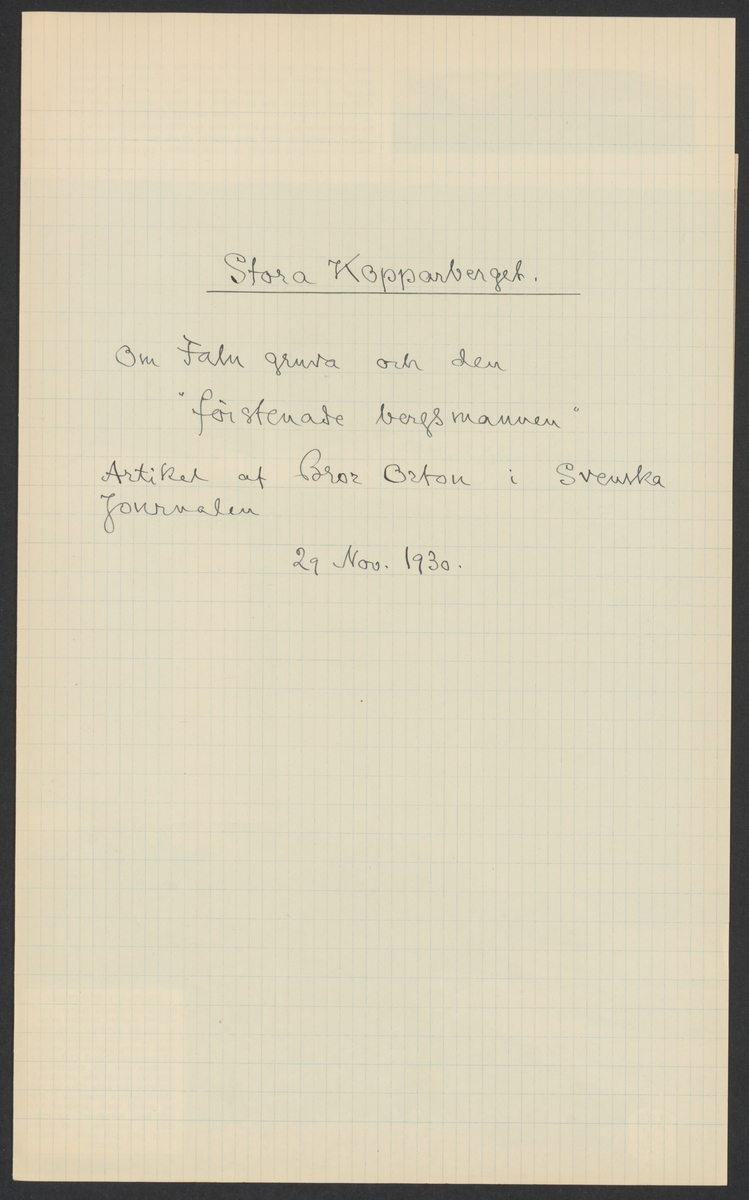 Stora Kopparberget.
Om Falu gruva och den
"förstenade bergsmannen"
Artikel af Bror Orton i Svenska
Journalen
29 Nov. 1930.